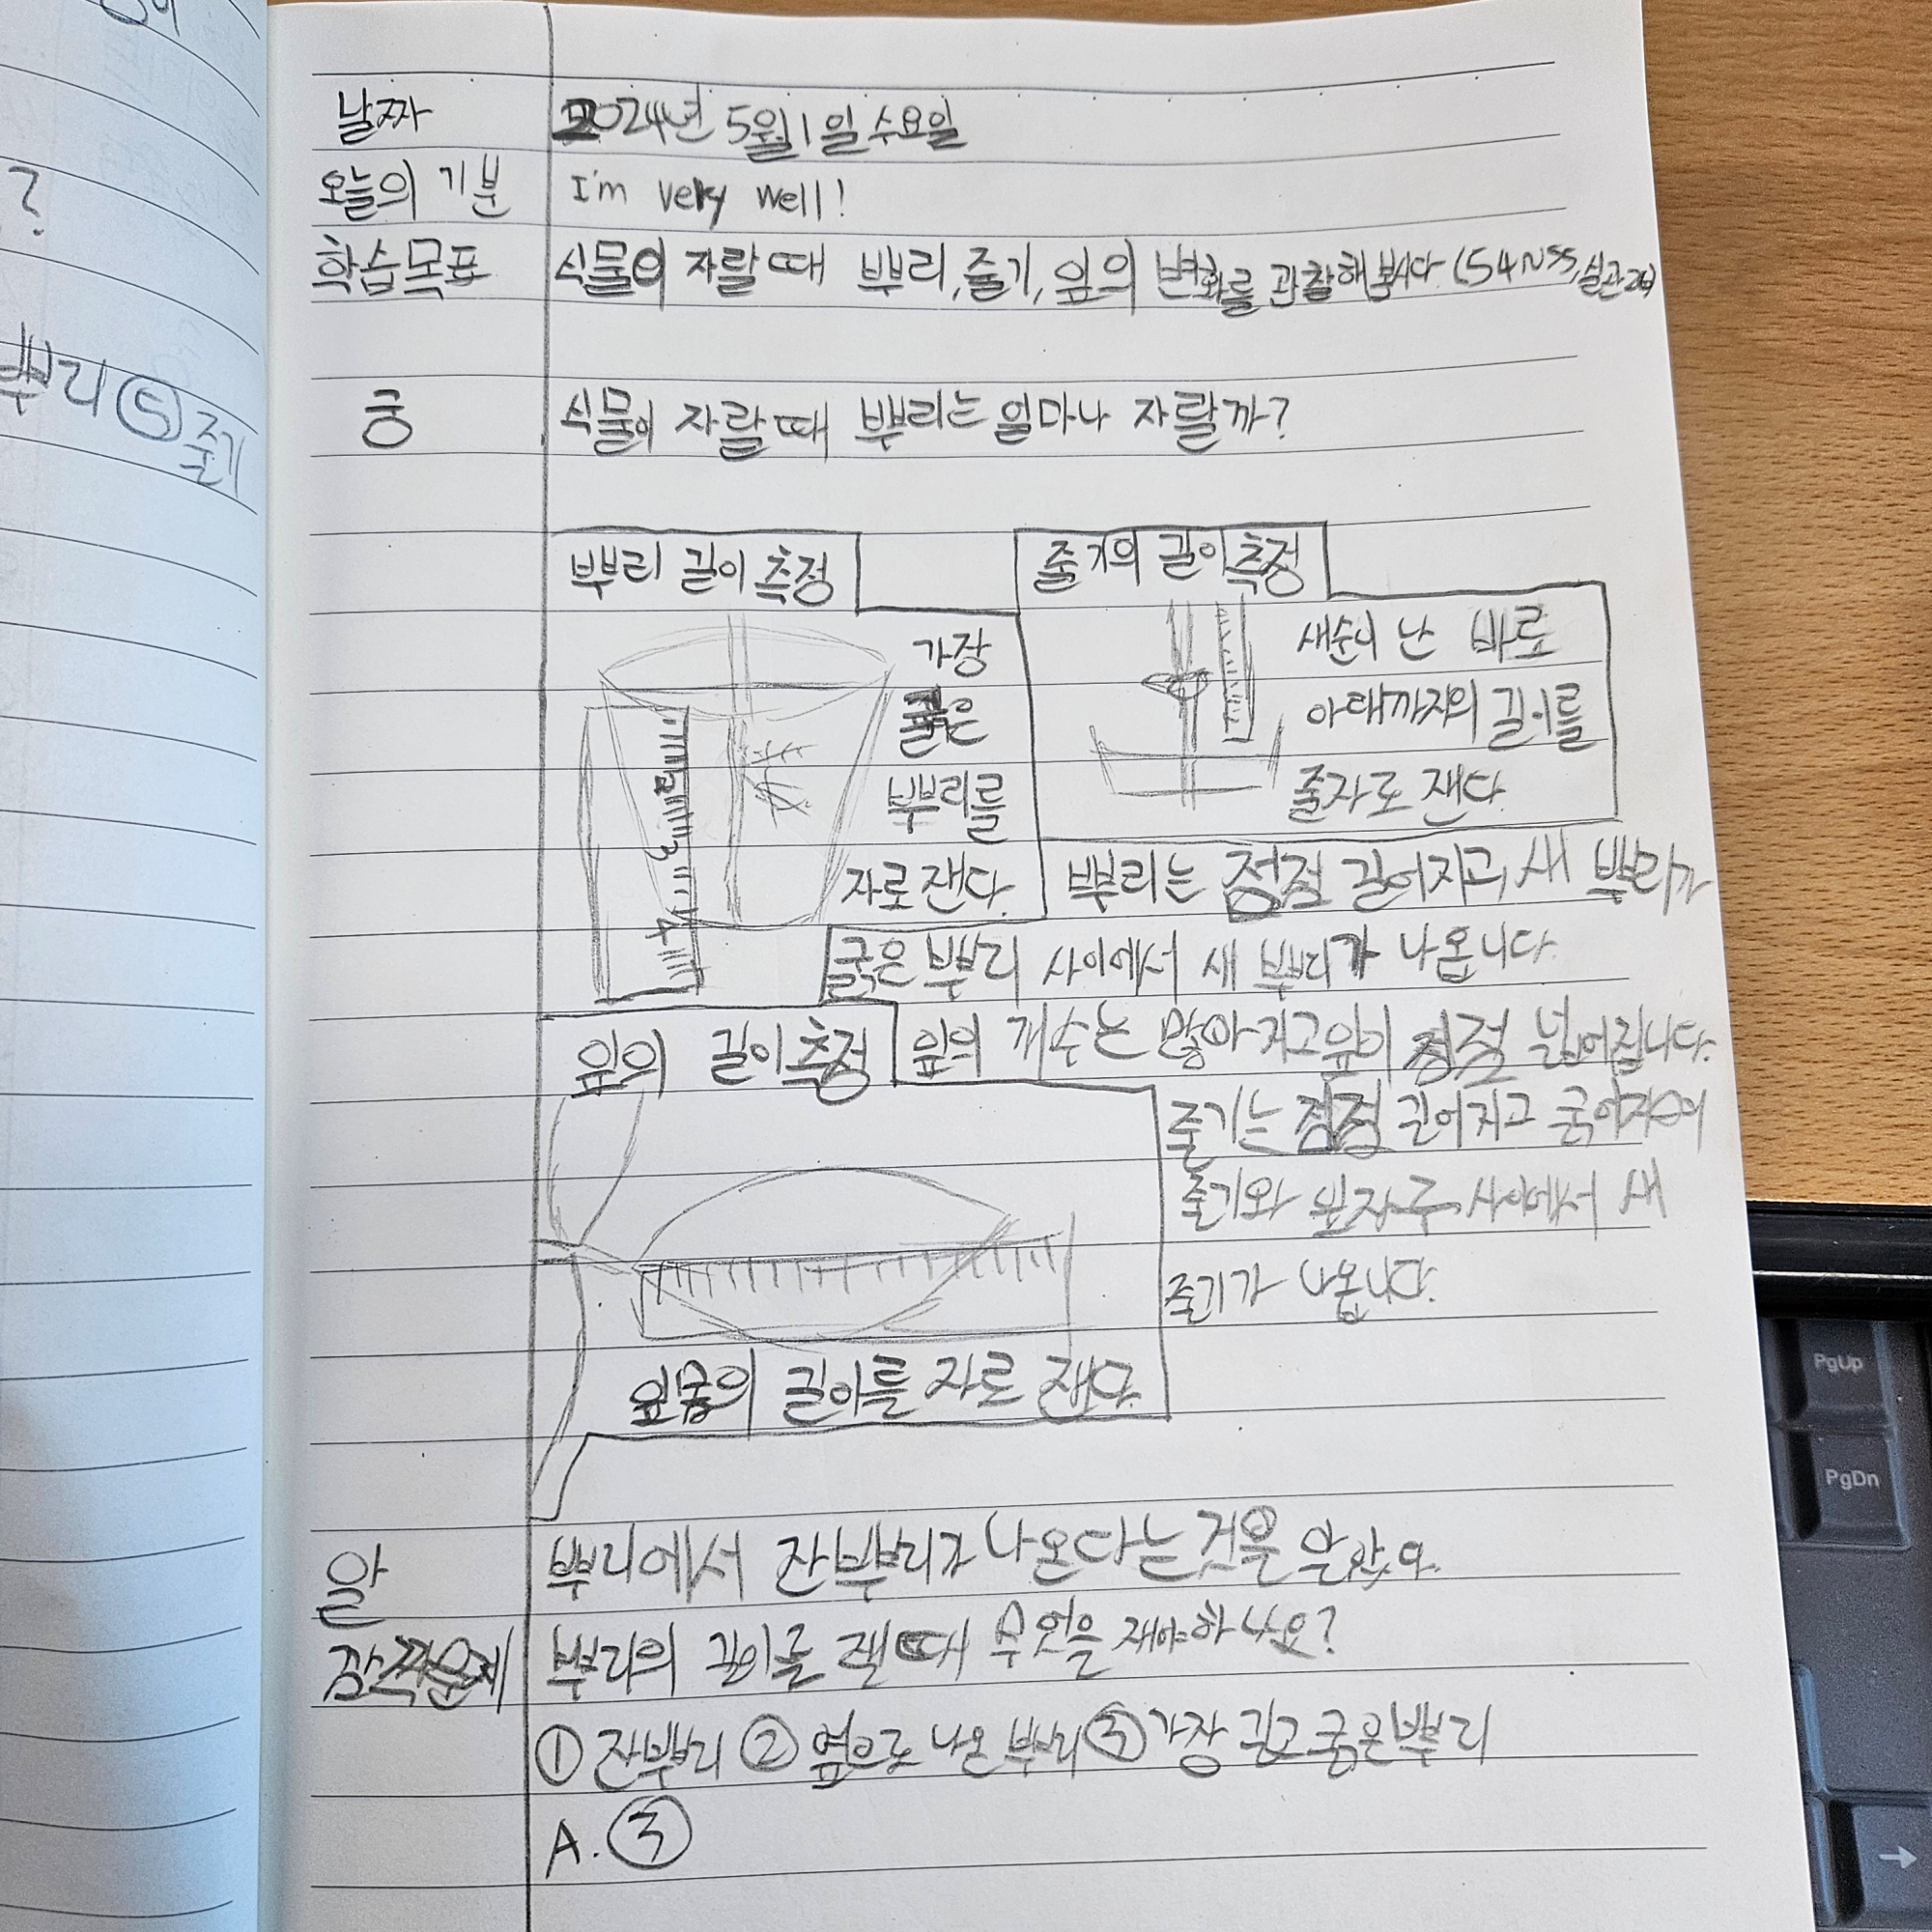 날짜 2024년 5월 1일 수요일
오늘의 기분 I'm very well!
학습목표 식물이 자랄 때 뿌리, 줄기, 잎의 변화를 관찰해봅시다 (54~55, 실관
궁 식물이 자랄 때 뿌리는 얼마나 자랄까?
뿌리 길이 측정
가장
굵은
뿌리를
자로 잰다.
2
3
4
줄기의 길이 측정
새순이 난 바로
아래까지의 길이를
줄자로 잰다
뿌리는 점점 길어지고, 새 뿌리가
굵은 뿌리 사이에서 새 뿌리가 나옵니다.
잎의 길이 측정
잎의 개수는 많아지고 잎이 점점 넓어집니다.
줄기는 점점 길어지고 굵어지며
줄기와 사이에서 새
줄기가 나옵니다.
길이를 자로 잰다.
알 뿌리에서 잔뿌리가 나온다는 것을 알았다.
뿌리의 길이를 잴 때 무엇을 재야하나요?
① 잔뿌리 ② 옆으로 나온 뿌리 ③ 가장 길고 굵은 뿌리
A. ③
?
뿌리 ⑤ 줄기
PgUp
PgDn
→